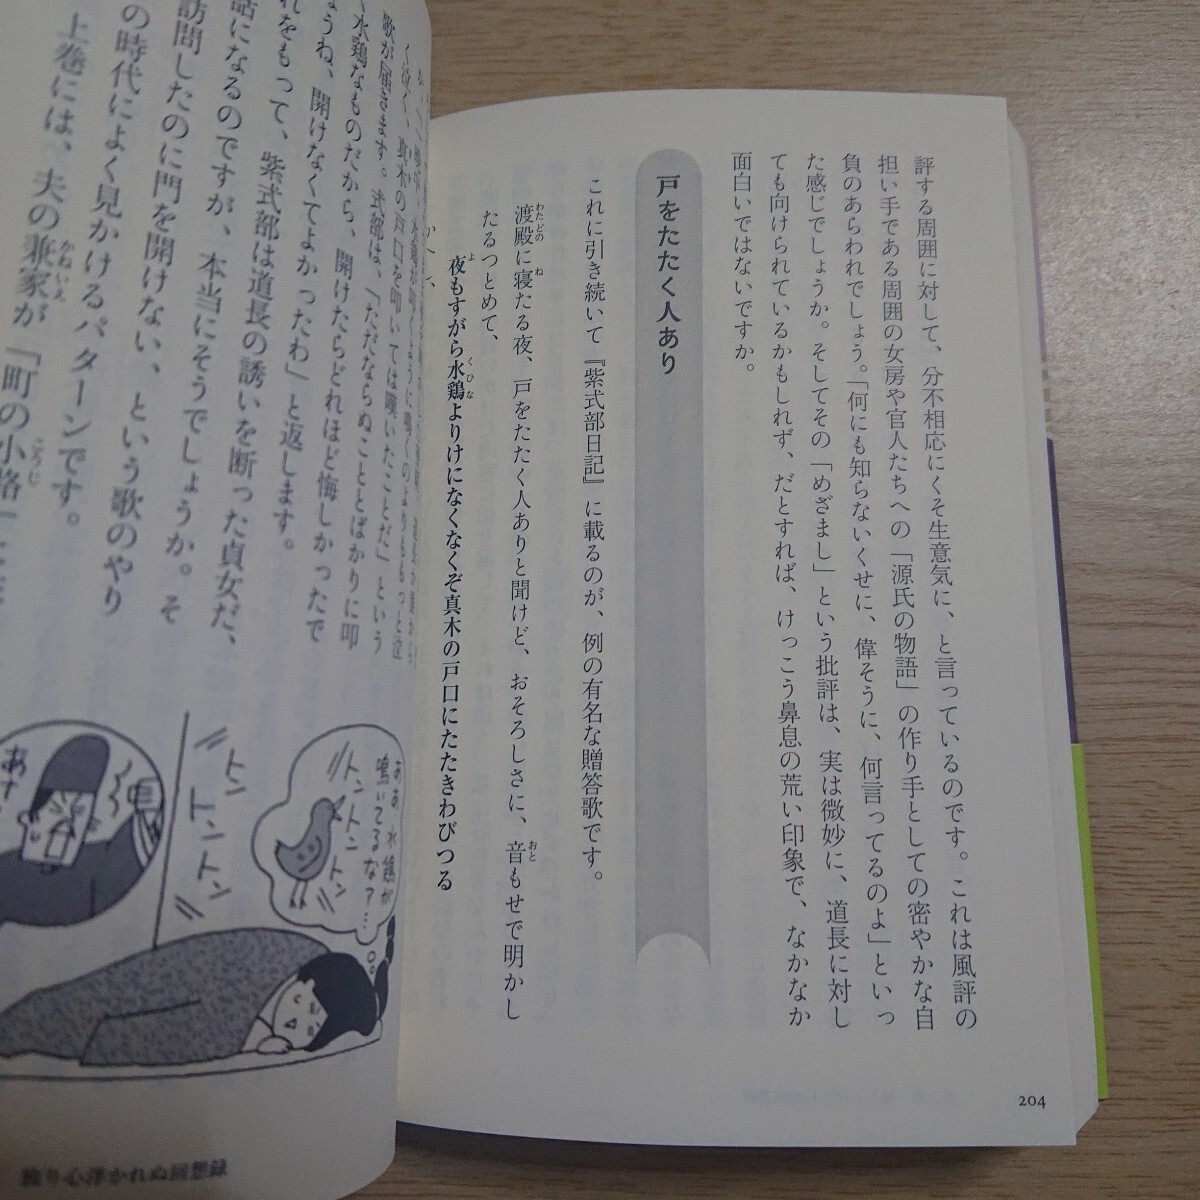 評する周囲に対して、分不相応にくそ生意気に、と言っているのです。これは風評の
担い手である周囲の女房や官人たちへの「源氏の物語」の作り手としての密やかな自
負のあらわれでしょう。「何にも知らないくせに、偉そうに、何言ってるのよ」といっ
た感じでしょうか。そしてその「めざまし」という批評は、実は微妙に、道長に対し
ても向けられているかもしれず、だとすれば、けっこう鼻息の荒い印象で、なかなか
面白いではないですか。
戸をたたく人あり
これに引き続いて『紫式部日記』に載るのが、例の有名な贈答歌です。
渡殿に寝たる夜、戸をたたく人ありと聞けど、おそろしさに、音もせで明かし
わたどの
ね
おと
たるつとめて、
夜もすがら水鶏よりけになくなくぞ真木の戸口にたたきわびつる
よ
くひな
204
く泣く、真木の戸口を叩いては嘆いたことだ」という
歌が届きます。式部は、「ただならぬこととばかりに叩
く水鶏なものだから、開けたらどれほど悔しかったで
ようね、開けなくてよかったわ」と返します。
れをもって、紫式部は道長の誘いを断った貞女だ、
話になるのですが、本当にそうでしょうか。そ
訪問したのに門を開けない、という歌のやり
の時代によく見かけるパターンです。
上巻には、夫の兼家が「町の小路」
かねいえ
こうじ
ああ
水鶏が
鳴いてるなァ…
トントントン
トントントン
独り心浮かれぬ回想録